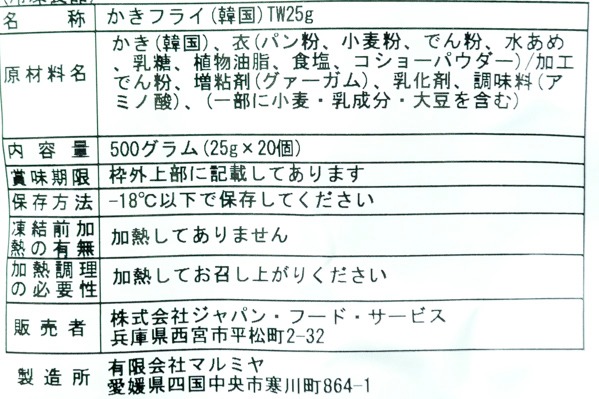 名称 かきフライ(韓国)TW25g
原材料名 かき(韓国)、衣(パン粉、小麦粉、でん粉、水あめ
、乳糖、植物油脂、食塩、コショーパウダー)/加工
でん粉、増粘剤(グァーガム)、乳化剤、調味料(ア
ミノ酸)、(一部に小麦・乳成分・大豆を含む)
内容量 500グラム(25g×20個)
賞味期限 枠外上部に記載してあります
保存方法 -18℃以下で保存してください
凍結前加
熱の有無 加熱してありません
加熱調理
の必要性 加熱してお召し上がりください
販売者 株式会社ジャパン・フード・サービス
兵庫県西宮市平松町2-32
製造所 有限会社マルミヤ
愛媛県四国中央市寒川町864-1